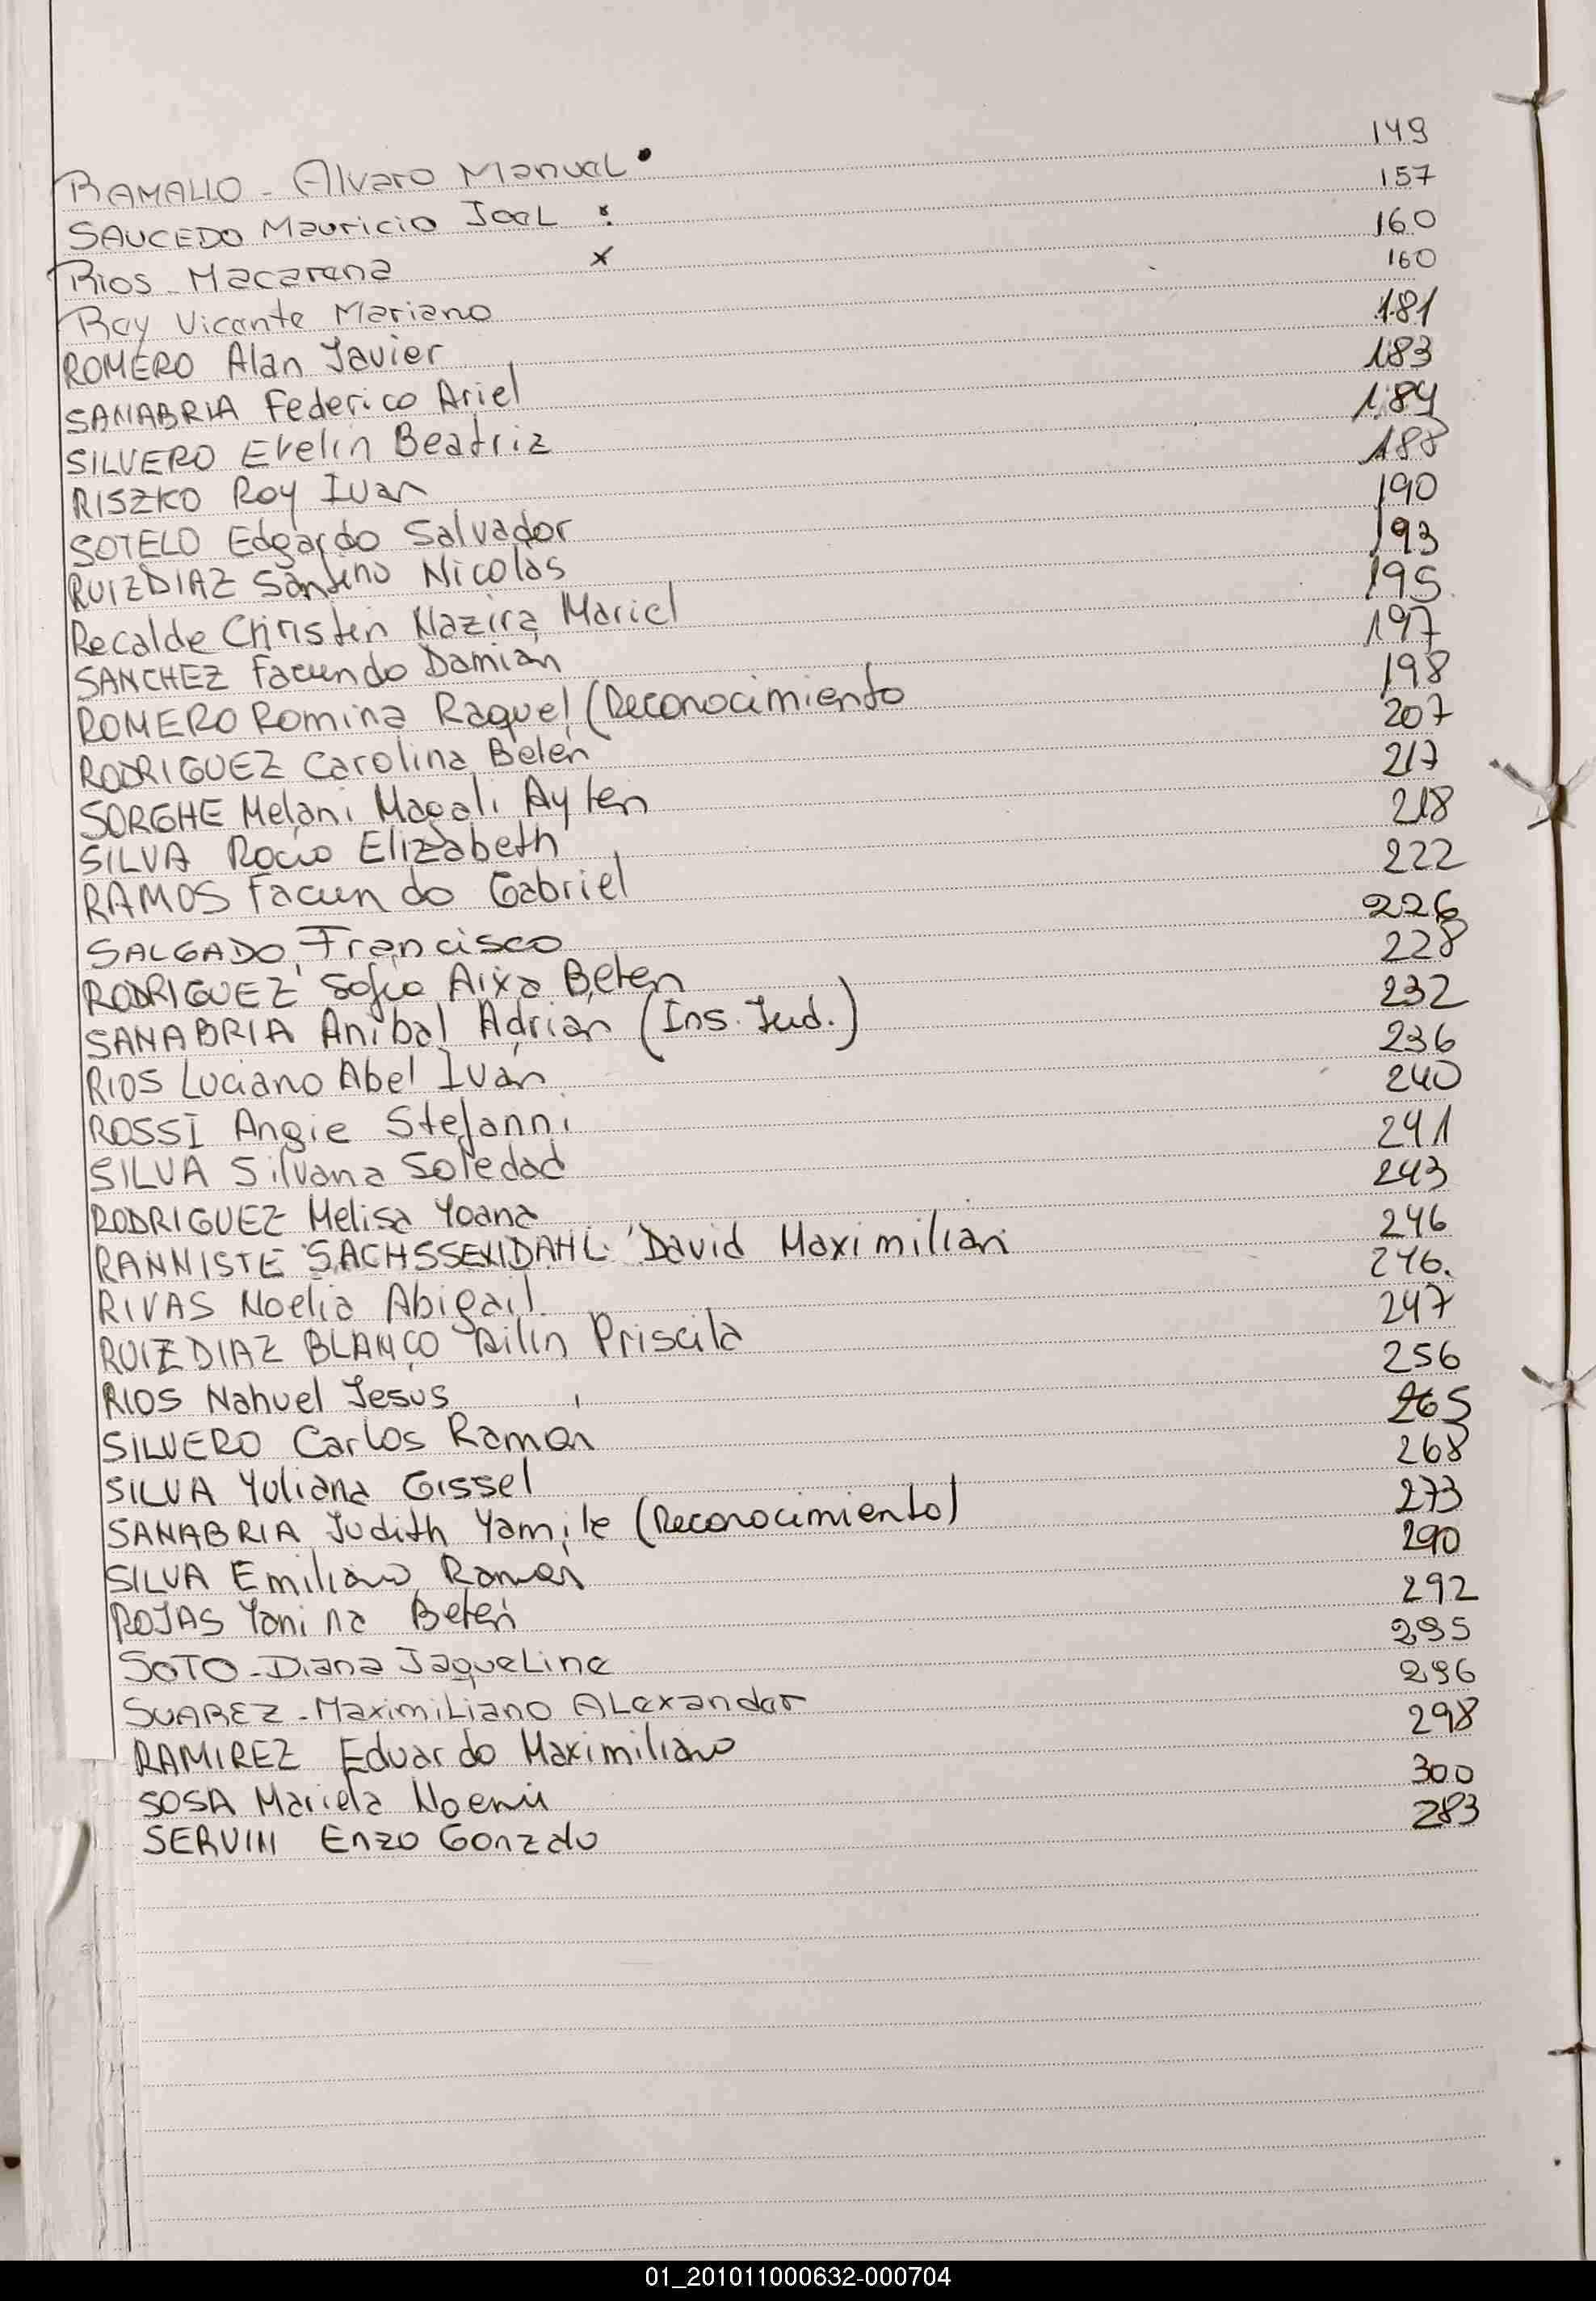 RAMALLO - Alvaro Manuel • 149
SAUCEDO Mauricio Joel : 157
Rios - Macarena x 160
Rey Vicente Mariano 160
ROMERO Alan Javier 181
SANABRIA Federico Ariel 183
SILVERO Evelin Beatriz 184
RISZKO Roy Ivan 188
SOTELO Edgardo Salvador 190
RUIZDIAZ Santino Nicolás 193
Recalde Christen Nazira Mariel 195
SANCHEZ Facundo Damián 197
ROMERO Romina Raquel (Reconocimiento 198
RODRIGUEZ Carolina Belén 207
SORGHE Melani Magali Aylen 217
SILVA Rocio Elizabeth 218
RAMOS Facundo Gabriel 222
SALGADO, Francisco 226
RODRIGUEZ Sofia Aixa Belen 228
SANABRIA Anibal Adrián (Ins. Jud.) 232
RIOS Luciano Abel Iván 236
ROSSI Angie Stefanni 240
SILVA Silvana Soledad 241
RODRIGUEZ Melisa Yoana 243
RANNISTE SACHSSENDAHL David Maximilian 246
RIVAS Noelia Abigail. 246.
RUIZ DIAZ BLANCO Ailin Priscila 247
RIOS Nahuel Jesus 256
SILVERO Carlos Ramón 265
SILVA Yuliana Gissel 268
SANABRIA Judith Yamile (Reconocimiento) 273
SILVA Emiliano Ramón 290
ROJAS Yanina Belén 292
SOTO - Diana Jaqueline 295
SUAREZ - Maximiliano Alexander 296
RAMIREZ Eduardo Maximiliano 298
SOSA Mariela Noemi 300
SERVIN Enzo Gonzalo 283
01_201011000632-000704